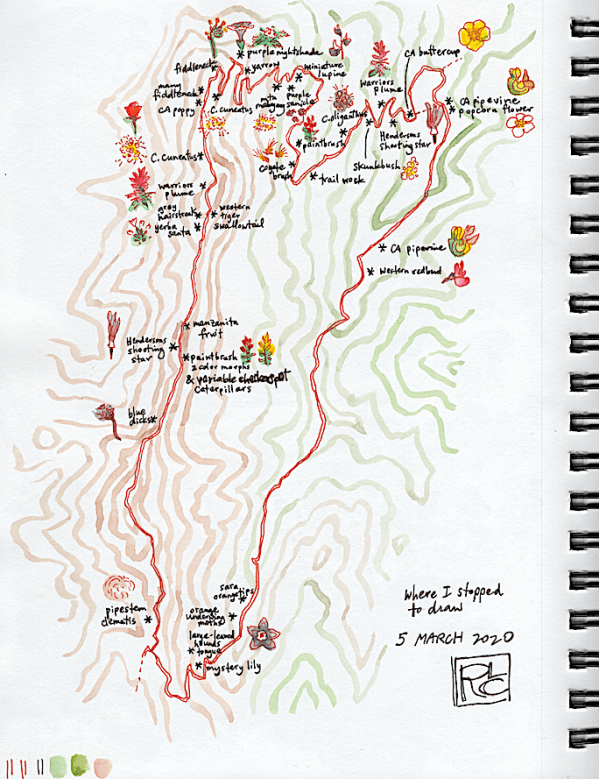 purple nightshade
fiddleneck
yarrow
miniature
lupine
CA buttercup
many
fiddleneck
CA poppy
C. cuneatus
purple
sanicle
warriors
plume
C. oliganthus
CA pipevine
popcorn flower
Hendersons
shooting star
paintbrush
skunkbush
coyote
brush
trail work
C. cuneatus
warriors
plume
gray
hairstreak
yerba
santa
western
tiger
swallowtail
CA pipevine
western redbud
manzanita
fruit
Hendersons
shooting
star
paintbrush
2 color morphs
& variable checkerspot
caterpillars
blue
dicks
pipestem
clematis
sara
orangetips
orange
underwing
moths
large-leaved
hounds
tongue
mystery lily
where I stopped
to draw
5 MARCH 2020